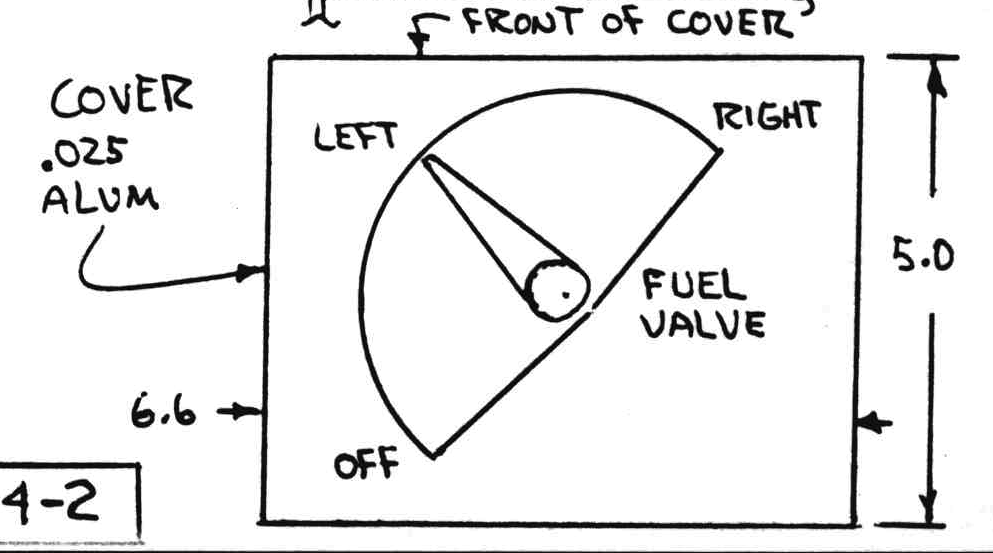 FRONT OF COVER
COVER
.025
ALUM
LEFT
RIGHT
5.0
FUEL
VALVE
6.6
OFF
4-2